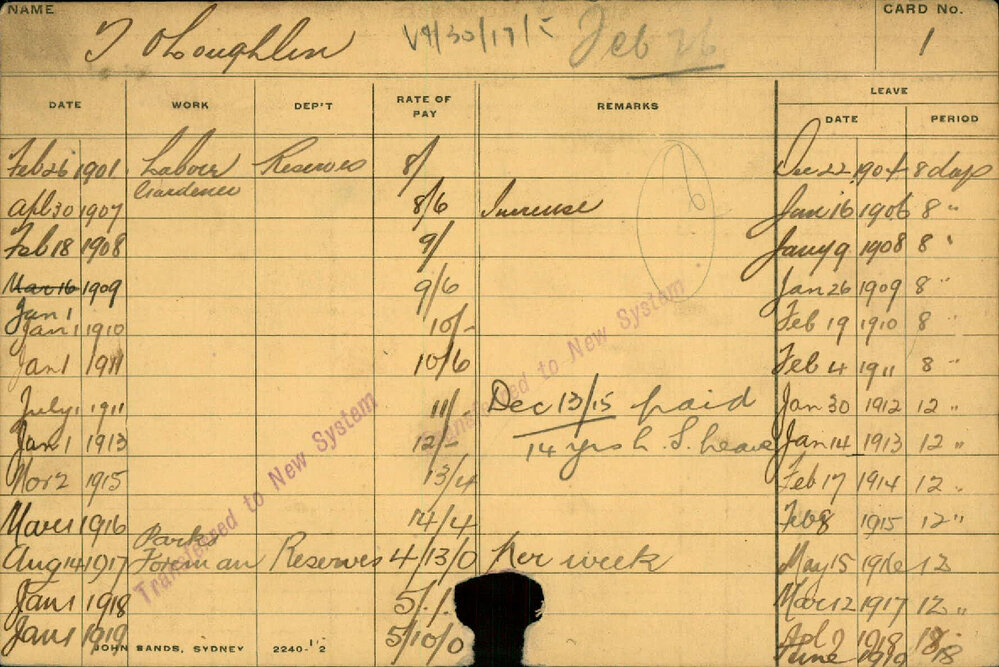 NAME
T O'Loughlin
Feb 26
CARD No.
1
DATE WORK DEP'T RATE OF PAY REMARKS LEAVE
DATE PERIOD
Feb 26 1901 Labour Reserves 8/ Dec 22 1904 8 days
Gardener
Apl 30 1907 8/6 Increase Jan 16 1906 8 "
Feb 18 1908 9/ Jany 9 1908 8 "
Mar 16 1909 9/6 Jan 26 1909 8 "
Jan 1
Jan 1 1910 10/- Feb 19 1910 8 "
Jan 1 1911 10/6 Feb 4 1911 8 "
July 1 1911 11/- Dec 13/15 paid Jan 30 1912 12 "
Jan 1 1913 12/- 14 yrs L. S. Leave Jan 14 1913 12 "
Nov 2 1915 13/4 Feb 17 1914 12 "
Mar 1 1916 14/4 Feb 8 1915 12 "
Parks
Aug 14 1917 Foreman Reserves 4/13/0 Per week May 15 1916 12
Jan 1 1918 5/./. Mar 12 1917 12 "
Jan 1 1919 5/10/0 Apl 9 1918 18
June 1919 18
Transferred to New System
Transferred to New System
JOHN SANDS, SYDNEY 2240-12